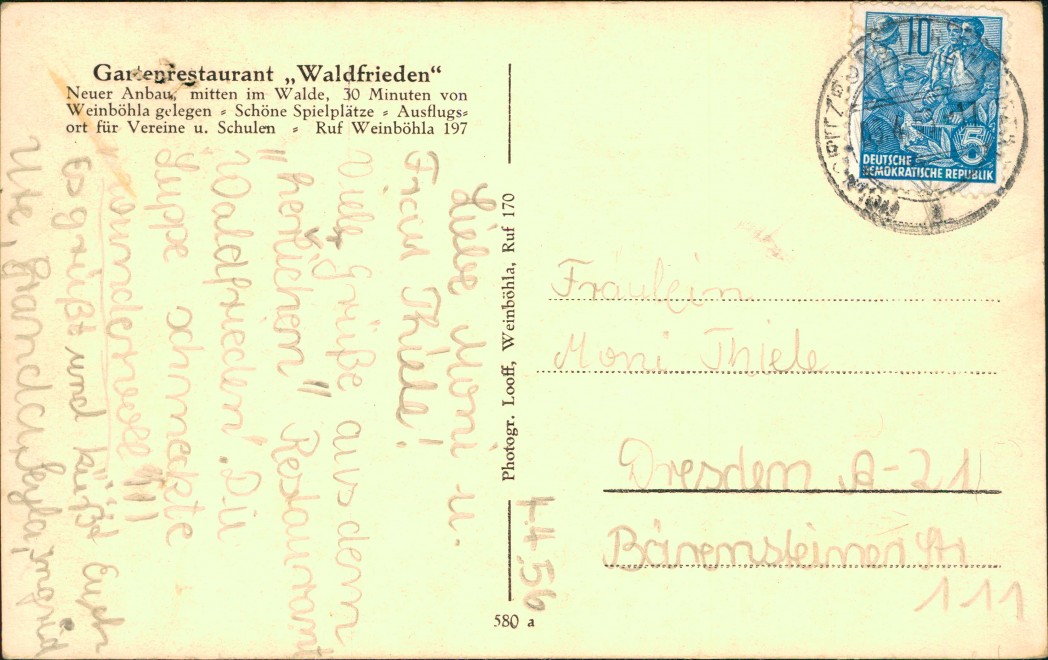 Gartenrestaurant „Waldfrieden“
Neuer Anbau, mitten im Walde, 30 Minuten von
Weinböhla gelegen = Schöne Spielplätze = Ausflugs=
ort für Vereine u. Schulen = Ruf Weinböhla 197
Liebe Moni u.
Frau Thiele!
Viele Grüße aus dem
"herrlichen" Restaurant
Waldfrieden. Die
Suppe schmeckte
wundervoll!!!
Es grüßt und küßt Euch
Ute,
Ingrid
Photogr. Looff, Weinböhla, Ruf 170
580 a
1.4.56
10
5
DEUTSCHE
DEMOKRATISCHE REPUBLIK
Fräulein
Moni Thiele
Dresden A-21
Bärensteiner Str
111